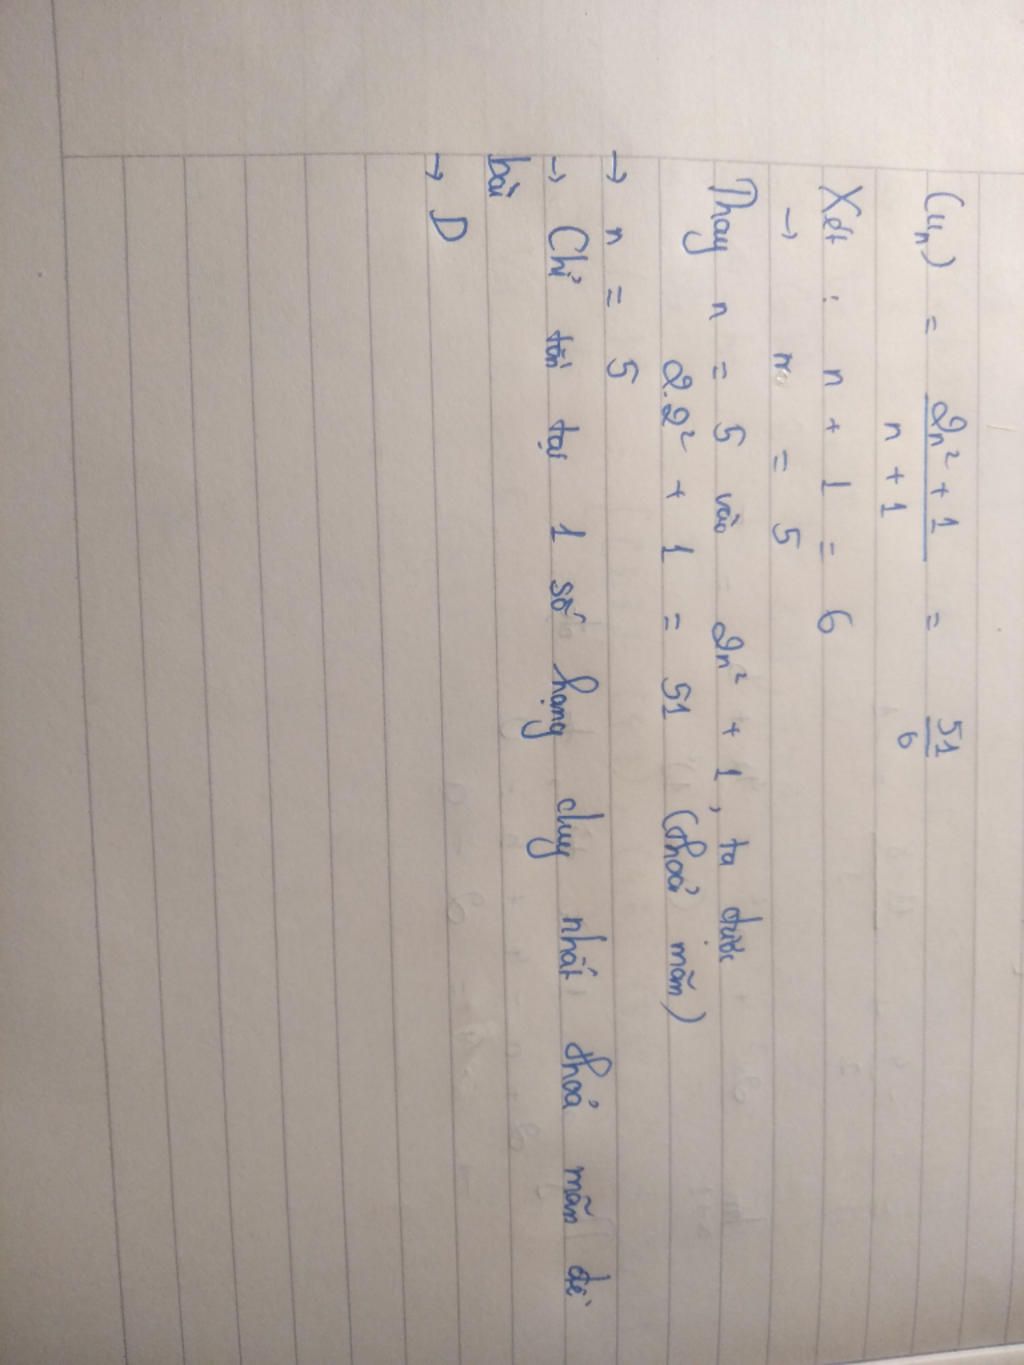 (un) = 2n² + 1 / n + 1 = 51 / 6
Xét : n + 1 = 6
→ n = 5
Thay n = 5 vào 2n² + 1, ta được
2.2² + 1 = 51 (thoả mãn)
→ n = 5
→ Chỉ tồn tại 1 số hạng duy nhất thoả mãn đề
bài
→ D